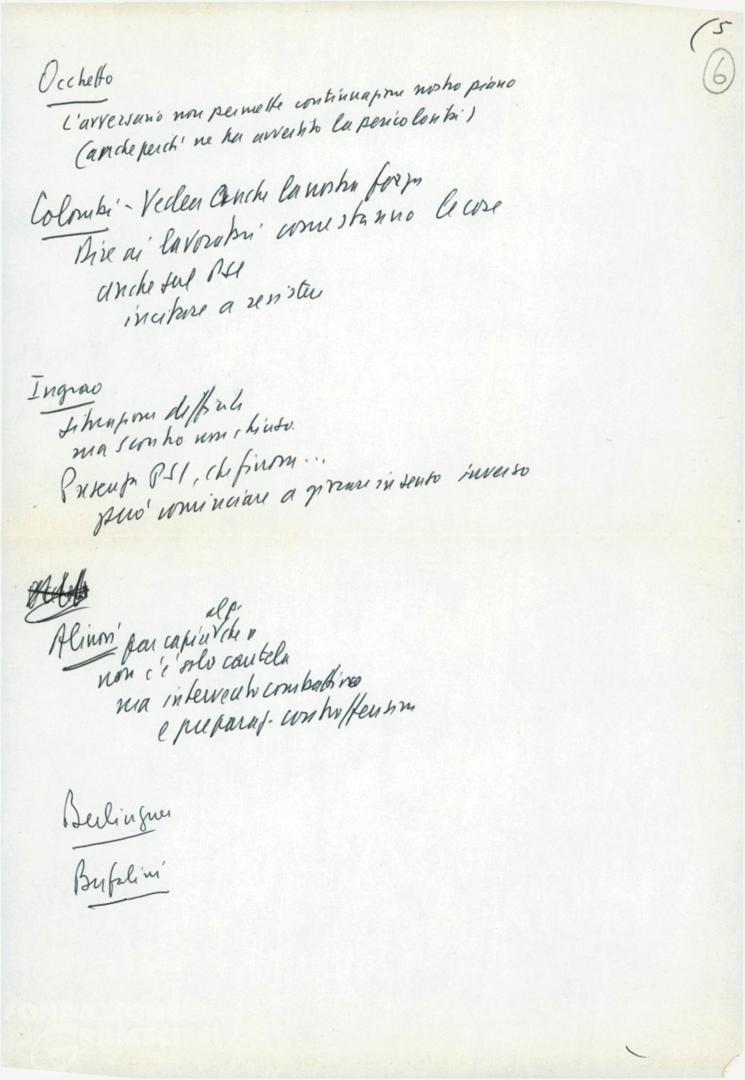 (5
6
Occhetto
L'avversario non permette continuazione nostro piano
(anche perché ne ha avvertito la pericolosità)
Colombi - Vedere anche la nostra forza
Dire ai lavoratori come stanno le cose
anche sul PSI
incitare a resistere
Ingrao
situazione difficile
ma scontro non chiuso.
Presenza PSI, che finora...
può cominciare a girare in senso inverso
Alinovi far capire che
non c'è solo cautela
ma intervento combattivo
e preparaz. controffensiva
Berlinguer
Bufalini
FONDAZIONE
GRAMSCI